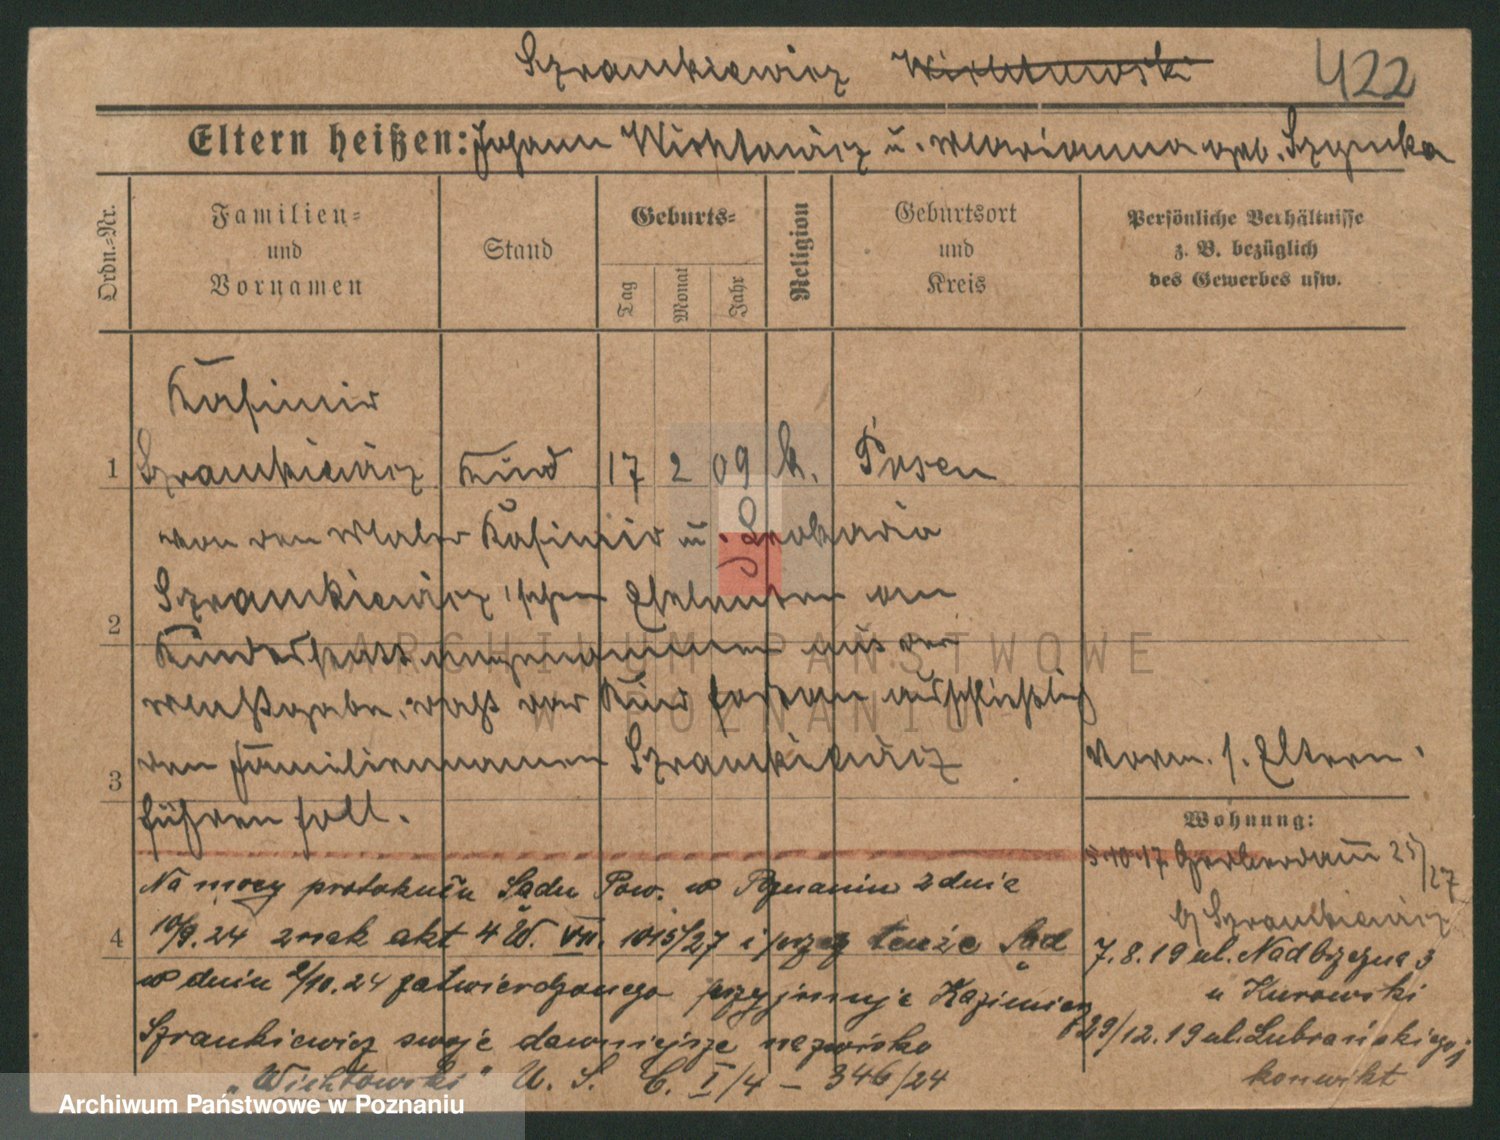 Szrankiewicz Wichtowski 422
Eltern heißen: Johann Wichtowicz u. Marianna geb.
Ordn.-Nr.
Familien-
und
Vornamen
Stand
Geburts-
Tag
Monat
Jahr
Religion
Geburtsort
und
Kreis
Persönliche Verhältnisse
z. B. bezüglich
des Gewerbes usw.
Kasimir
1 Szrankiewicz Kind 17 2 09 k. Posen
von den Maler Kasimir u. Leokadia
Szrankiewicz'schen Eheleuten an
2
Kindesstatt angenommen mit der
Maßgabe, daß das Kind fortan ausschließlich
den Familiennamen Szrankiewicz
3
führen soll.
Vorm. s. Eltern.
Wohnung:
5.10.17 Gerberdamm 25/27
b/ Szrankiewicz
7.8.19 ul. Nadbrzeżna 3
u Kurowski
29/12.19 ul. Lubrańskiego
konwikt
Na mocy protokułu Sądu Pow. w Poznaniu z dnia
4 10/9.24 znak akt 4 W. VII. 1015/27 i przez tenże Sąd
w dniu 2/10.24 zatwierdzonego przyjmuje Kazimierz
Szrankiewicz swoje dawniejsze nazwisko
„Wichtowski" U. S. C. I/4 – 346/24
ARCHIWUM PAŃSTWOWE
W POZNANIU
Archiwum Państwowe w Poznaniu